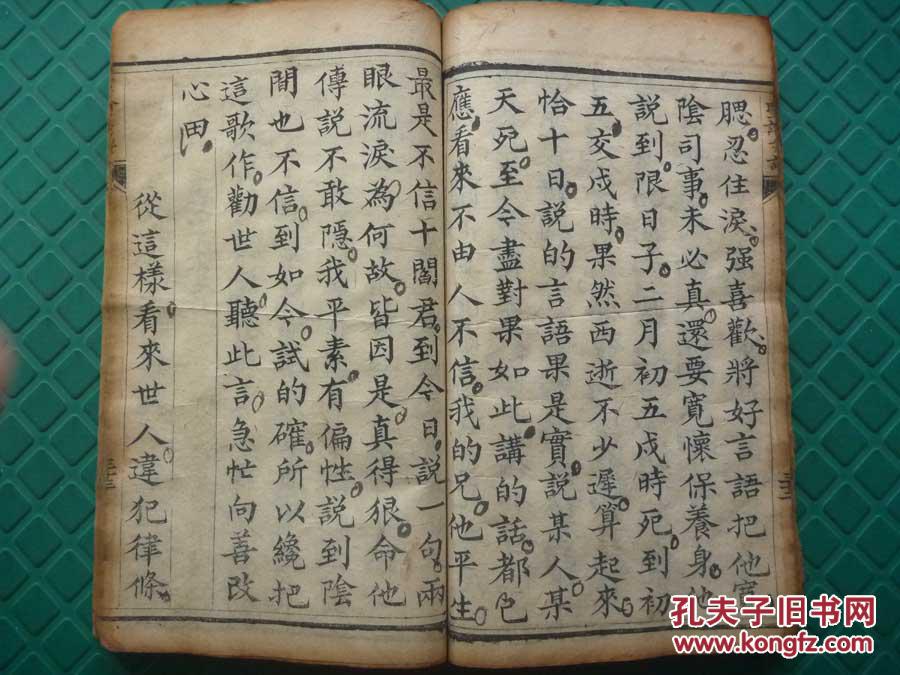 腮忍住淚。强喜歡。將好言語把他寬
陰司事。未必真。還要寬懷保養身。他
説到。限日子。二月初五戌時死。到初
五。交戌時。果然西逝不少遲。算起來。
恰十日。説的言語果是實。説某人。某
天死。至今盡對果如此。講的話。都
應。看來不由人不信。我的兄。他平生。
最是不信十閻君。到今日。説一句。兩
眼流淚為何故。皆因是。真得狠。命他
傳説不敢隱。我平素。有偏性。説到陰
間也不信。到如今。試的確。所以纔把
這歌作。勸世人。聽此言。急忙向善改
心田。
從這樣看來。世人。違犯律條。
三十二
三十三
孔夫子旧书网
www.kongfz.com